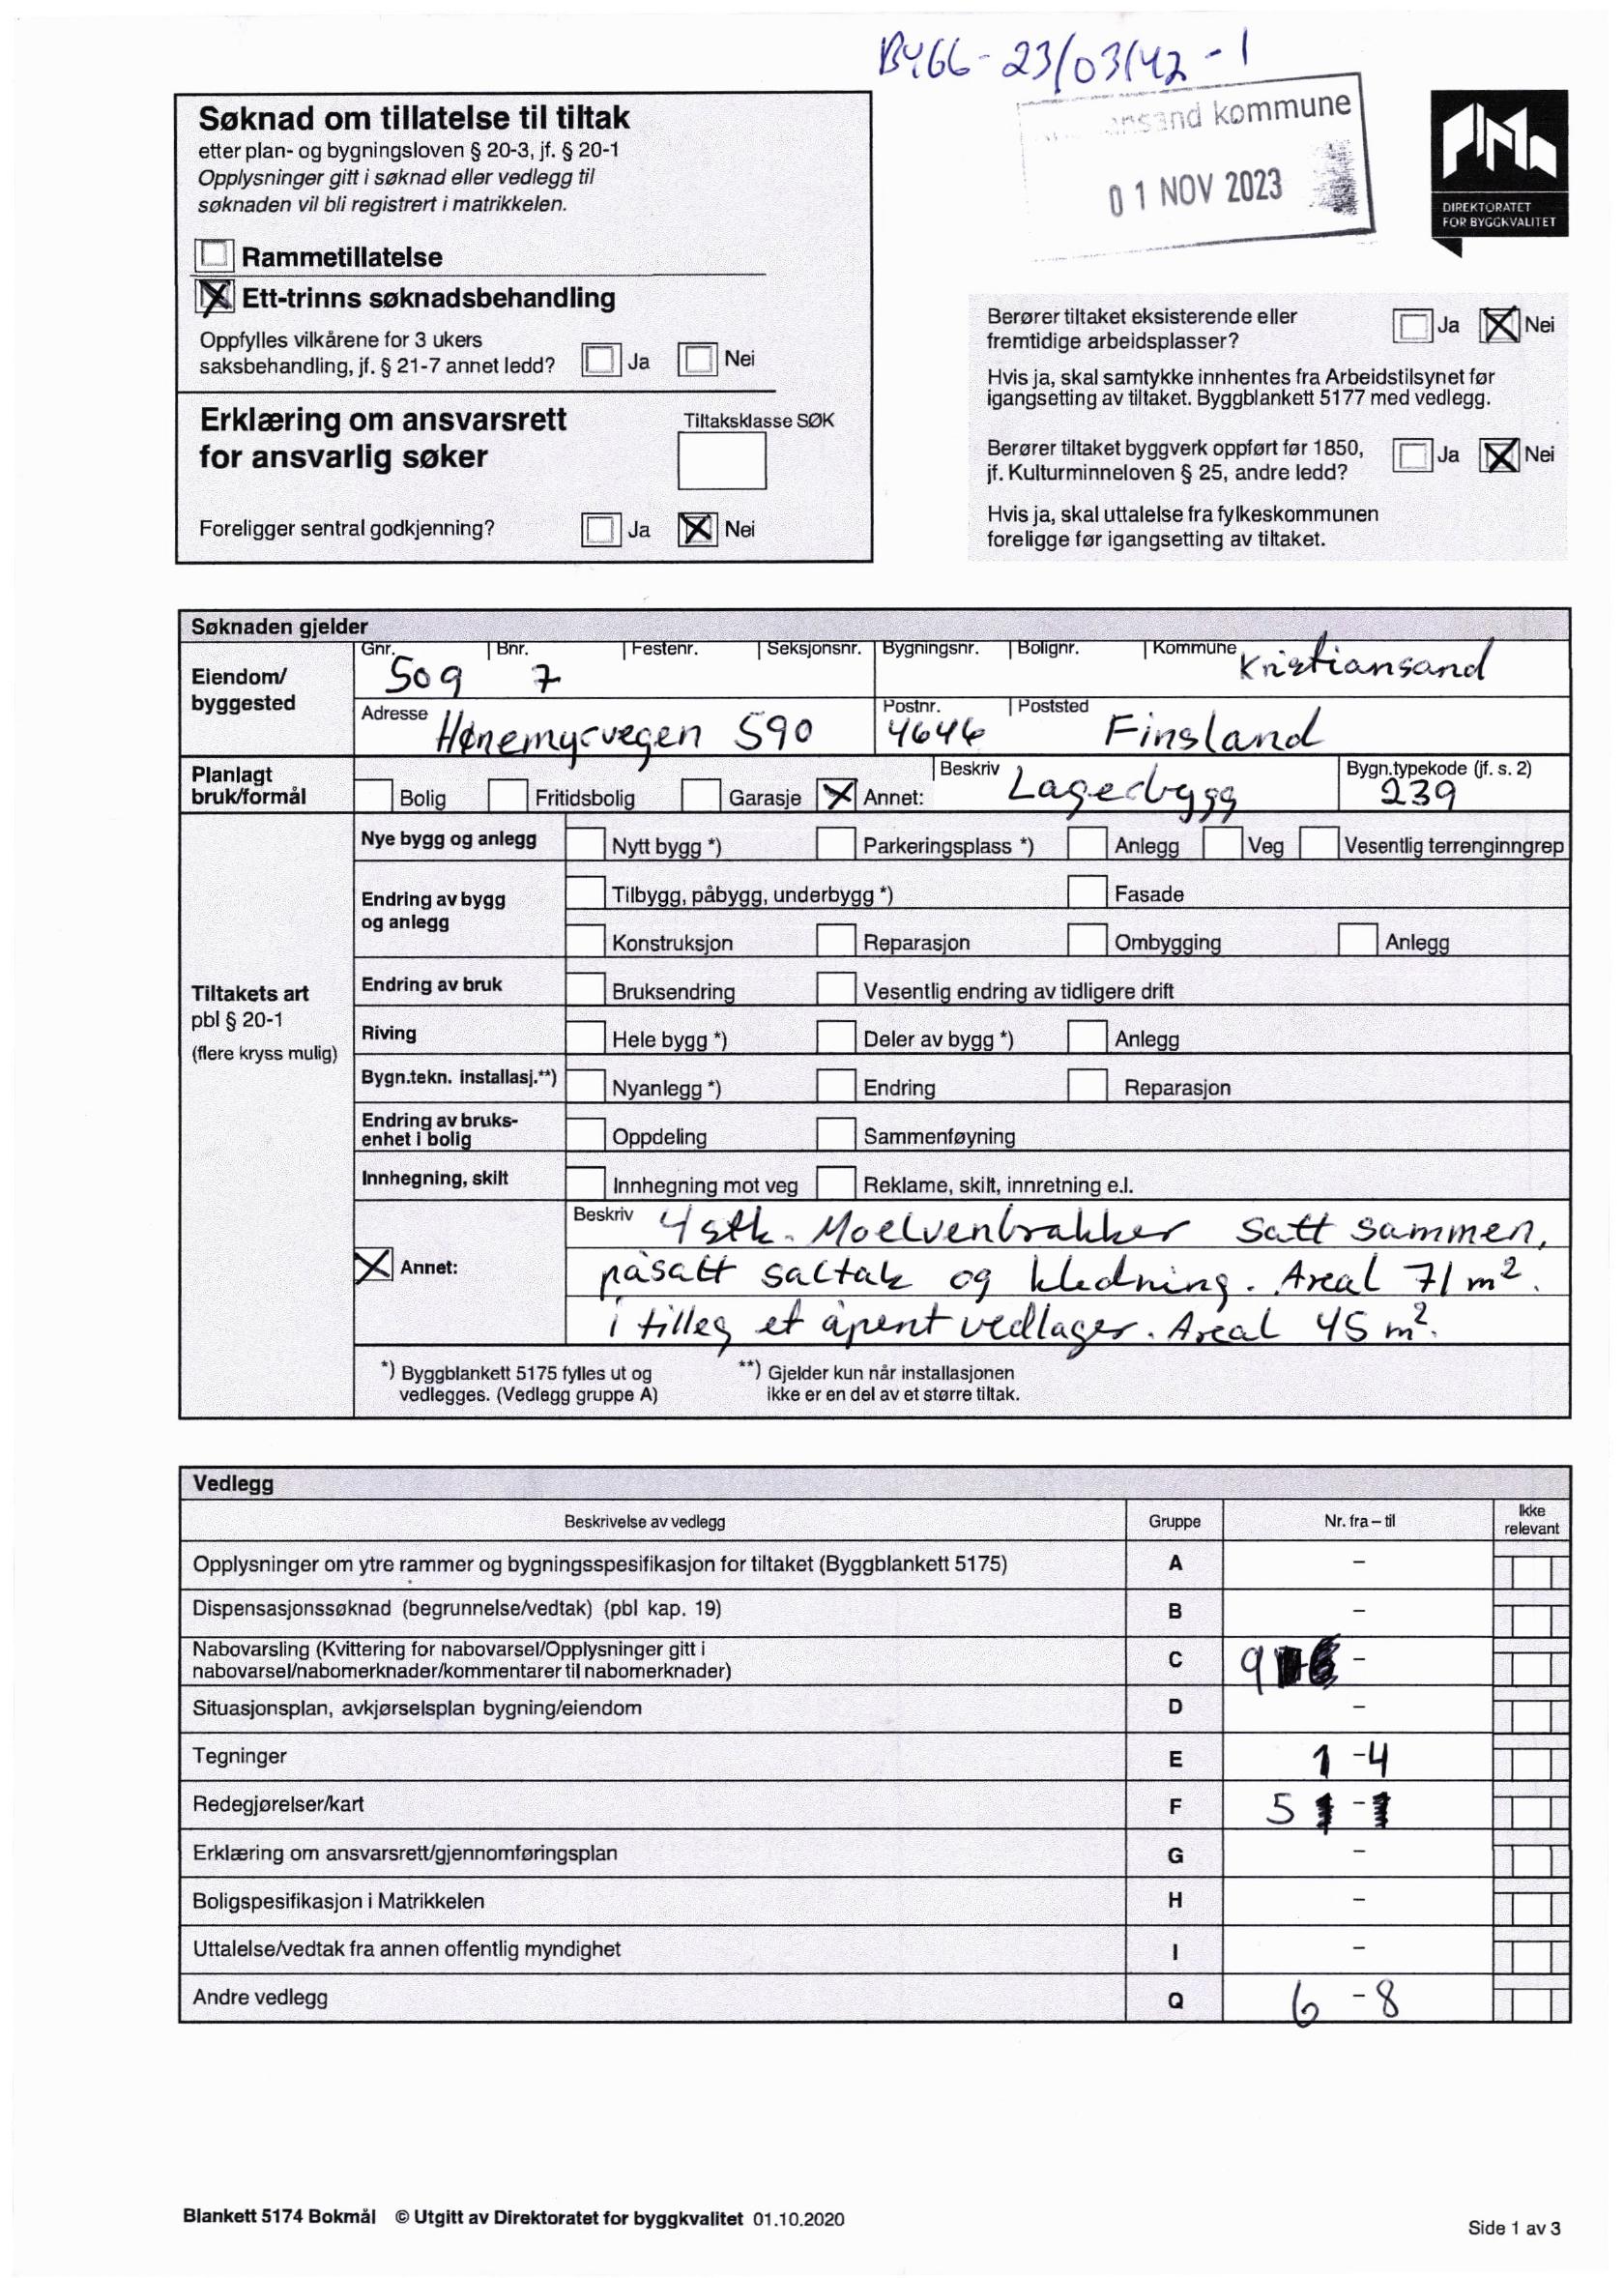 BYGG-23/03142-1
Søknad om tillatelse til tiltak
etter plan- og bygningsloven § 20-3, jf. § 20-1
Opplysninger gitt i søknad eller vedlegg til
søknaden vil bli registrert i matrikkelen.
Rammetillatelse
Ett-trinns søknadsbehandling
Oppfylles vilkårene for 3 ukers
saksbehandling, jf. § 21-7 annet ledd? Ja Nei
Erklæring om ansvarsrett
for ansvarlig søker
Tiltaksklasse SØK
Foreligger sentral godkjenning? Ja Nei
kommune
01 NOV 2023
DIREKTORATET
FOR BYGGKVALITET
Berører tiltaket eksisterende eller
fremtidige arbeidsplasser? Ja Nei
Hvis ja, skal samtykke innhentes fra Arbeidstilsynet før
igangsetting av tiltaket. Byggblankett 5177 med vedlegg.
Berører tiltaket byggverk oppført før 1850,
jf. Kulturminneloven § 25, andre ledd? Ja Nei
Hvis ja, skal uttalelse fra fylkeskommunen
foreligge før igangsetting av tiltaket.
Søknaden gjelder
Eiendom/
byggested
Gnr. Bnr. Festenr. Seksjonsnr. Bygningsnr. Bolignr. Kommune
509 7 Kristiansand
Adresse Postnr. Poststed
Hønemyrvegen 590 4646 Finsland
Planlagt
bruk/formål
Bolig Fritidsbolig Garasje Annet: Beskriv Lagerbygg Bygn.typekode (jf. s. 2)
239
Tiltakets art
pbl § 20-1
(flere kryss mulig)
Nye bygg og anlegg Nytt bygg *) Parkeringsplass *) Anlegg Veg Vesentlig terrenginngrep
Endring av bygg
og anlegg
Tilbygg, påbygg, underbygg *) Fasade
Konstruksjon Reparasjon Ombygging Anlegg
Endring av bruk Bruksendring Vesentlig endring av tidligere drift
Riving Hele bygg *) Deler av bygg *) Anlegg
Bygn.tekn. installasj.**) Nyanlegg *) Endring Reparasjon
Endring av bruks-
enhet i bolig
Oppdeling Sammenføyning
Innhegning, skilt Innhegning mot veg Reklame, skilt, innretning e.l.
Annet:
Beskriv 4 stk. Moelvenbrakker satt sammen,
påsatt saltak og kledning. Areal 71 m².
i tilleg et åpent vedlager. Areal 45 m².
*) Byggblankett 5175 fylles ut og
vedlegges. (Vedlegg gruppe A)
**) Gjelder kun når installasjonen
ikke er en del av et større tiltak.
Vedlegg
Beskrivelse av vedlegg Gruppe Nr. fra – til Ikke
relevant
Opplysninger om ytre rammer og bygningsspesifikasjon for tiltaket (Byggblankett 5175) A –
Dispensasjonssøknad (begrunnelse/vedtak) (pbl kap. 19) B –
Nabovarsling (Kvittering for nabovarsel/Opplysninger gitt i
nabovarsel/nabomerknader/kommentarer til nabomerknader) C 9 –
Situasjonsplan, avkjørselsplan bygning/eiendom D –
Tegninger E 1 – 4
Redegjørelser/kart F 5 –
Erklæring om ansvarsrett/gjennomføringsplan G –
Boligspesifikasjon i Matrikkelen H –
Uttalelse/vedtak fra annen offentlig myndighet I –
Andre vedlegg Q 6 – 8
Blankett 5174 Bokmål © Utgitt av Direktoratet for byggkvalitet 01.10.2020
Side 1 av 3